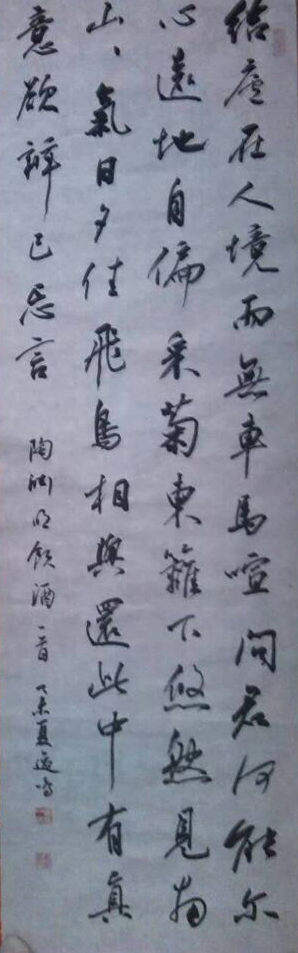 結廬在人境而無車馬喧問君何能尔
心遠地自偏采菊東籬下悠然見南
山、氣日夕佳飛鳥相與還此中有真
意欲辯已忘言
陶淵明飲酒一首 乙未夏